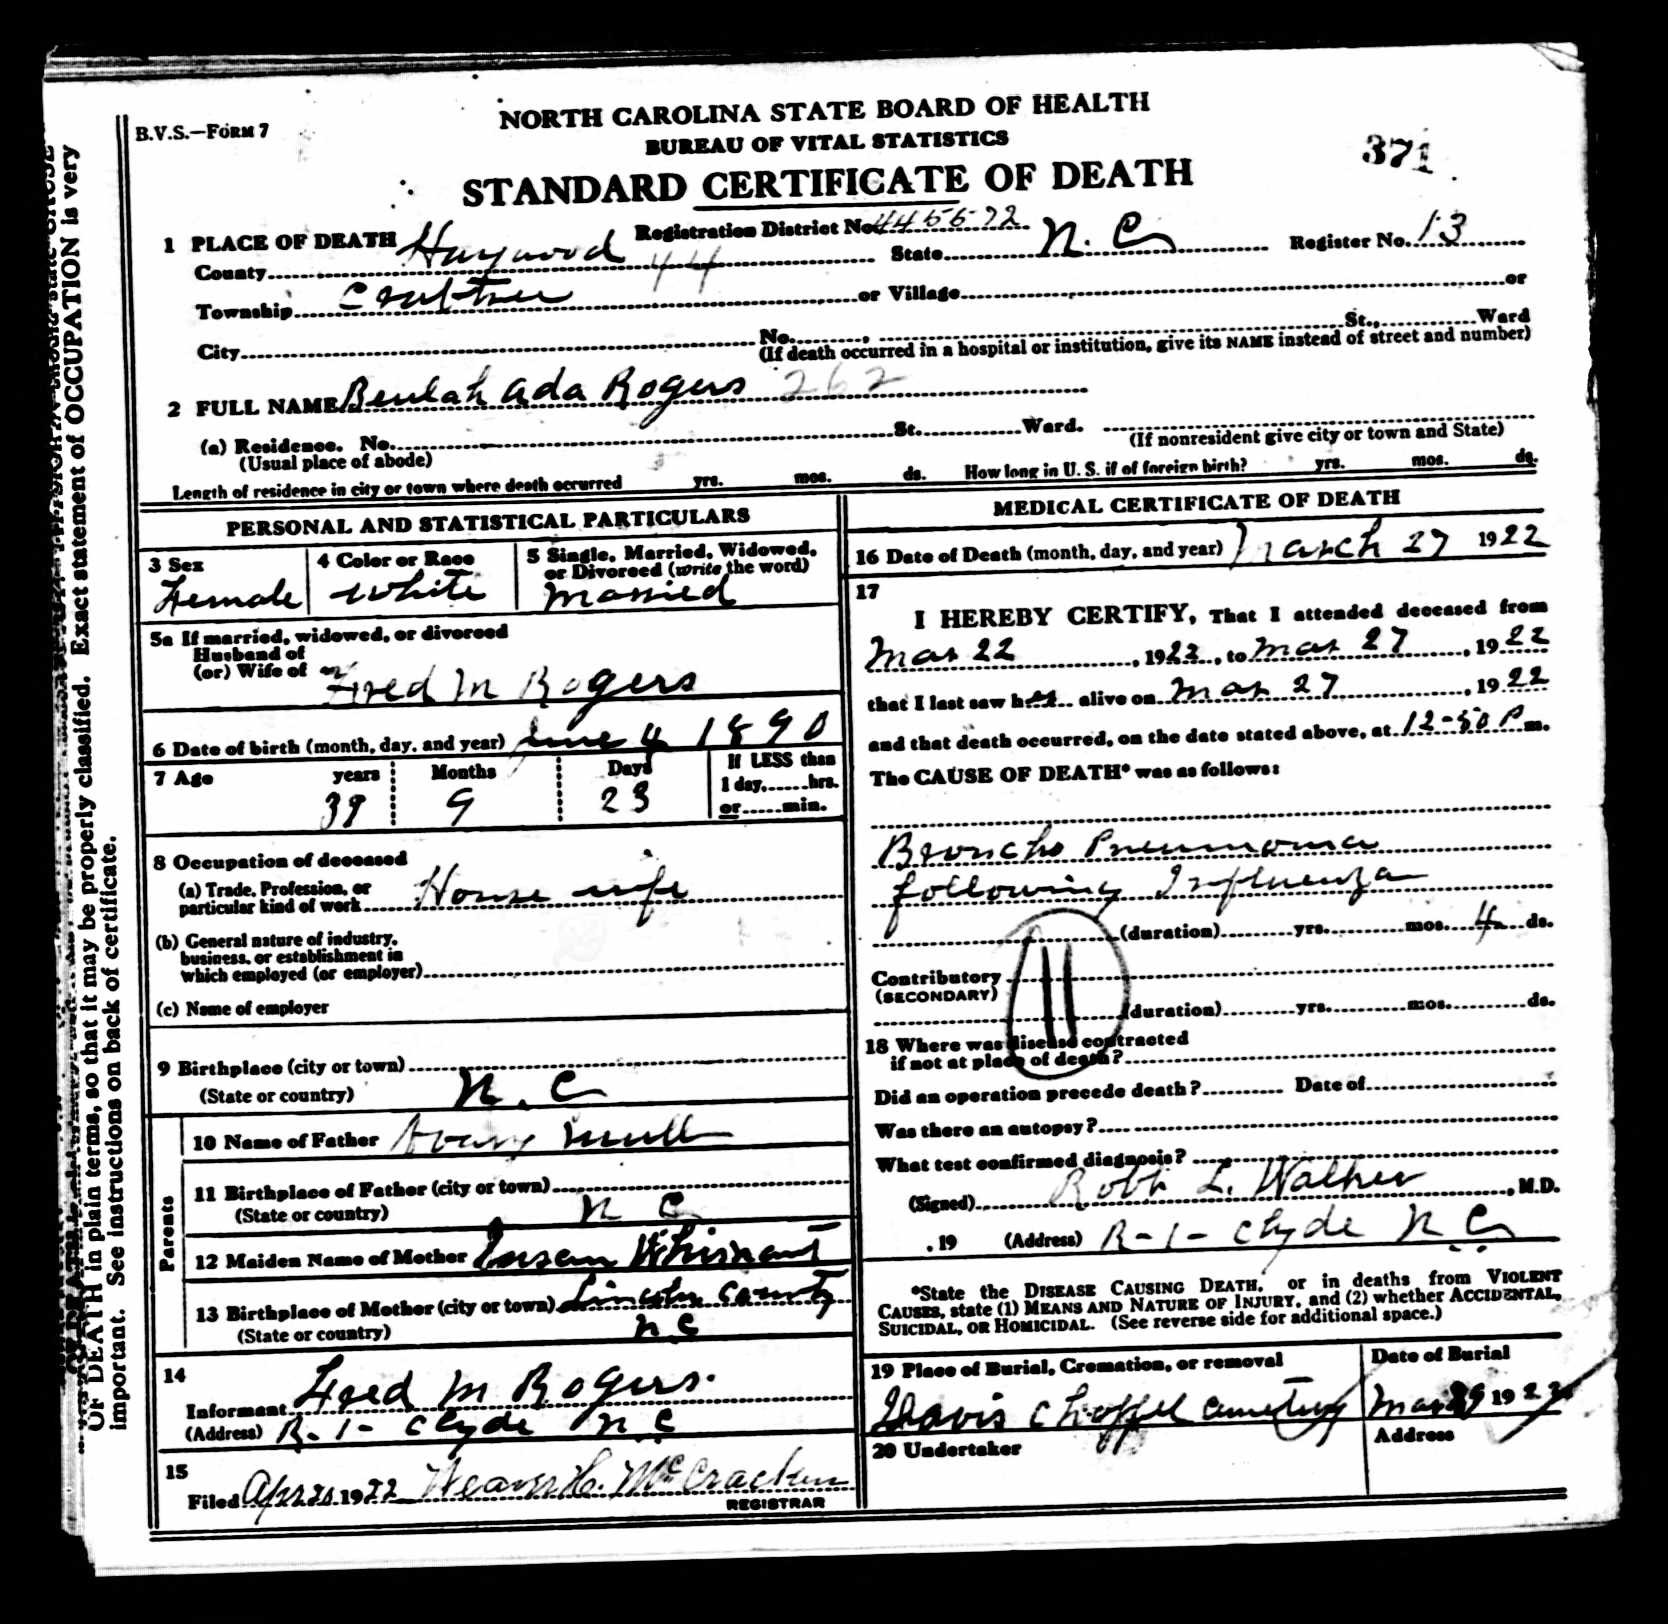 B.V.S.—FORM 7
NORTH CAROLINA STATE BOARD OF HEALTH
BUREAU OF VITAL STATISTICS
371
STANDARD CERTIFICATE OF DEATH
1 PLACE OF DEATH Registration District No. 4455572 Register No. 13
County Haywood 44 State N. C.
Township Crabtree or Village or
City No. , St., Ward
(If death occurred in a hospital or institution, give its NAME instead of street and number)
2 FULL NAME Beulah Ada Rogers 262
(a) Residence. No. St. Ward.
(Usual place of abode) (If nonresident give city or town and State)
Length of residence in city or town where death occurred yrs. mos. ds. How long in U. S. if of foreign birth? yrs. mos. ds.
PERSONAL AND STATISTICAL PARTICULARS
3 Sex 4 Color or Race 5 Single, Married, Widowed,
or Divorced (write the word)
Female White Married
5a If married, widowed, or divorced
Husband of
(or) Wife of Fred M Rogers
6 Date of birth (month, day, and year) June 4 1890
7 Age years Months Days If LESS than
1 day,......hrs.
or......min.
9 23
8 Occupation of deceased
(a) Trade, Profession, or
particular kind of work House wife
(b) General nature of industry,
business, or establishment in
which employed (or employer)
(c) Name of employer
9 Birthplace (city or town)
(State or country) N. C
Parents
10 Name of Father Mull
11 Birthplace of Father (city or town)
(State or country) N C
12 Maiden Name of Mother Susan Whisnant
13 Birthplace of Mother (city or town) Lincoln County
(State or country) N C
14
Informant Fred M Rogers.
(Address) R-1- Clyde N.C
15
Filed Apr 20 1922 Weaver H. McCracken
REGISTRAR
MEDICAL CERTIFICATE OF DEATH
16 Date of Death (month, day, and year) March 27 1922
17
I HEREBY CERTIFY, That I attended deceased from
Mar 22, 1922, to Mar 27, 1922
that I last saw her alive on Mar 27, 1922
and that death occurred, on the date stated above, at 12-50 P m.
The CAUSE OF DEATH* was as follows:
Broncho Pneumonia
following Influenza
(duration) yrs. mos. 4 ds.
Contributory
(SECONDARY)
11
(duration) yrs. mos. ds.
18 Where was disease contracted
if not at place of death?
Did an operation precede death? Date of
Was there an autopsy?
What test confirmed diagnosis?
(Signed) Robt L. Walker, M.D.
, 19 (Address) R-1- Clyde N C.
*State the DISEASE CAUSING DEATH, or in deaths from VIOLENT
CAUSES, state (1) MEANS AND NATURE OF INJURY, and (2) whether ACCIDENTAL,
SUICIDAL, OR HOMICIDAL. (See reverse side for additional space.)
19 Place of Burial, Cremation, or removal Date of Burial
Davis Chappel Cemetery Mar 29 1922
20 Undertaker Address
OF DEATH in plain terms, so that it may be properly classified. Exact statement of OCCUPATION is very
important. See instructions on back of certificate.